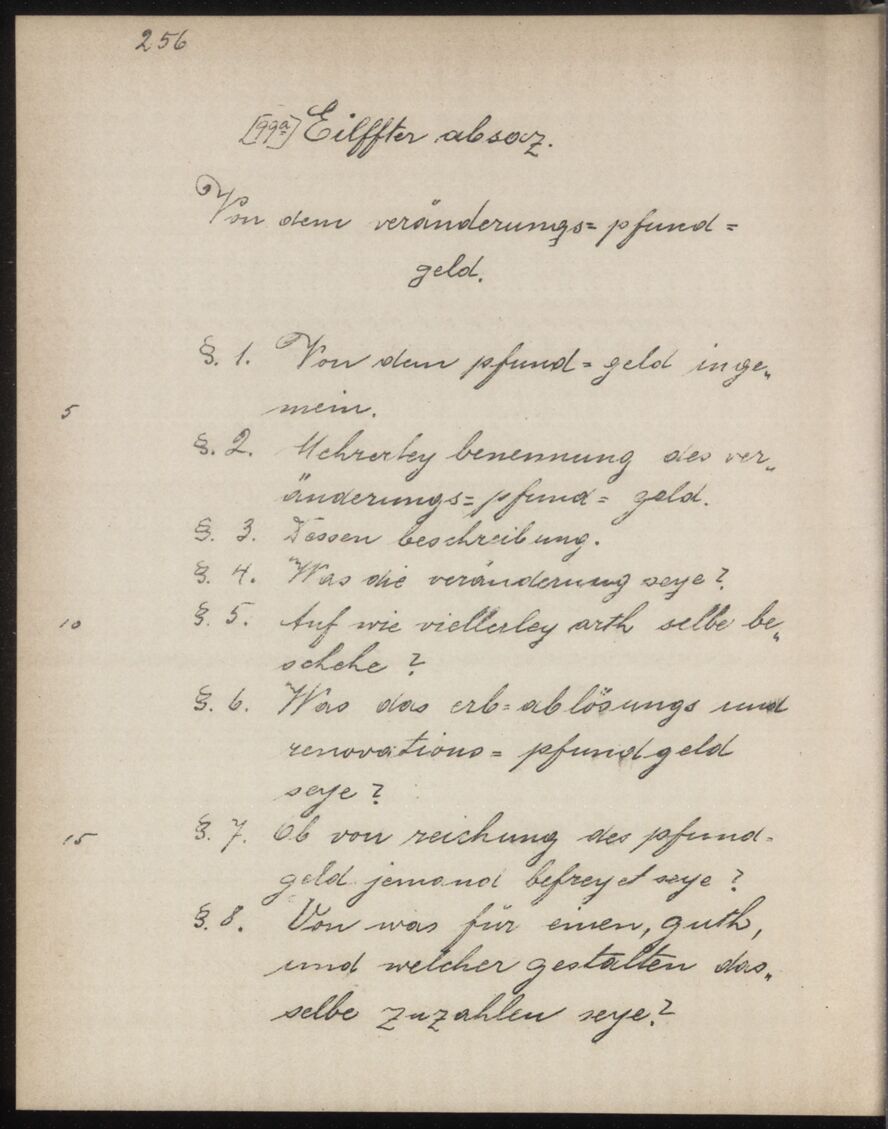 256
[99a] Eilffter absaz.
Von dem veränderungs= pfund=
geld.
§. 1. Von dem pfund=geld inge„
5 mein.
§. 2. Mehrerley benennung des ver„
änderungs=pfund= geld.
§. 3. Dessen beschreibung.
§. 4. Was die veränderung seye?
10 §. 5. Auf wie viellerley arth selbe be„
schehe?
§. 6. Was das erb=ablösungs und
renovations= pfundgeld
seye?
15 §. 7. Ob von reichung des pfund=
geld jemand befreyet seye?
§. 8. Von was für einen, guth,
und welcher gestalten das„
selbe zuzahlen seye?